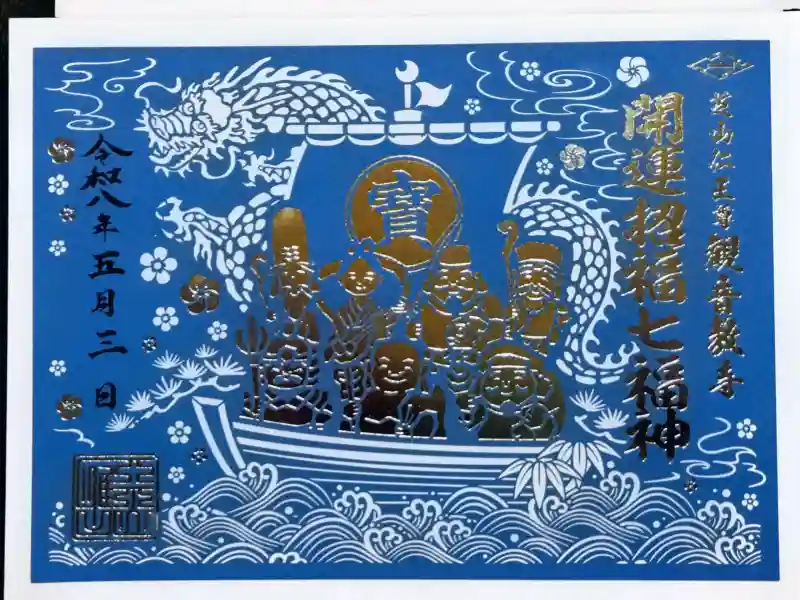 芝山仁王尊 観音教寺
開運招福七福神
寶
令和八年五月三日